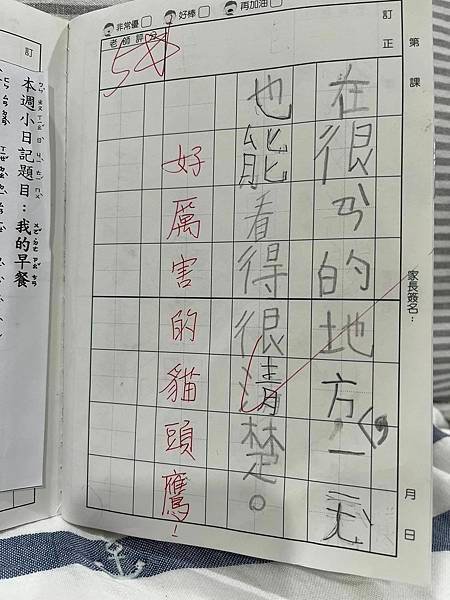 非常優 好棒 再加油
老師評分
訂正
第 課
家長簽名：
月 日
在很ㄢ的地方，一
也能看得很清楚。
好厲害的貓頭鷹！
5☆
訂
本週小日記題目：我的早餐